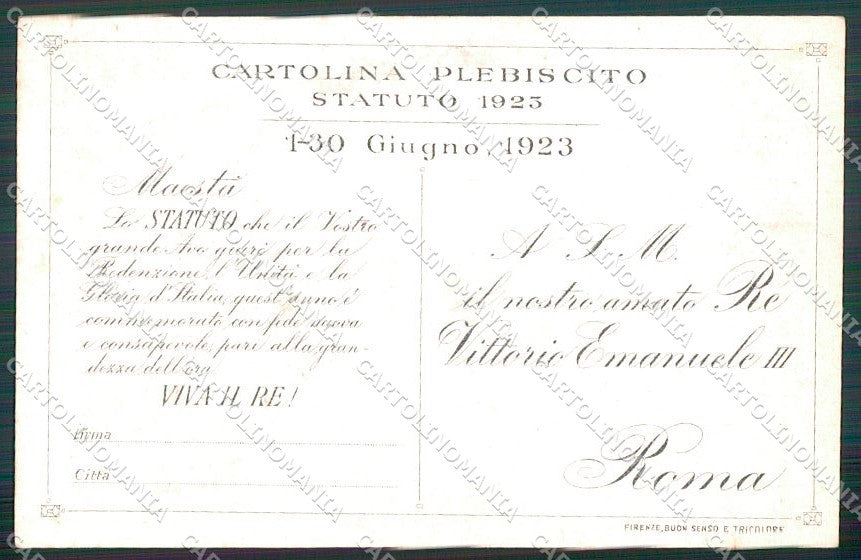 CARTOLINA PLEBISCITO
STATUTO 1923
1-30 Giugno, 1923
Maestà
Lo STATUTO che il Vostro
grande Avo giurò per la
Redenzione, l'Unità e la
Gloria d'Italia, quest'anno è
commemorato con fede nuova
e consapevole, pari alla gran-
dezza dell'ora
VIVA IL RE!
Firma
Città
A S. M.
il nostro amato Re
Vittorio Emanuele III
Roma
FIRENZE, BUON SENSO E TRICOLORE
CARTOLINOMANIA